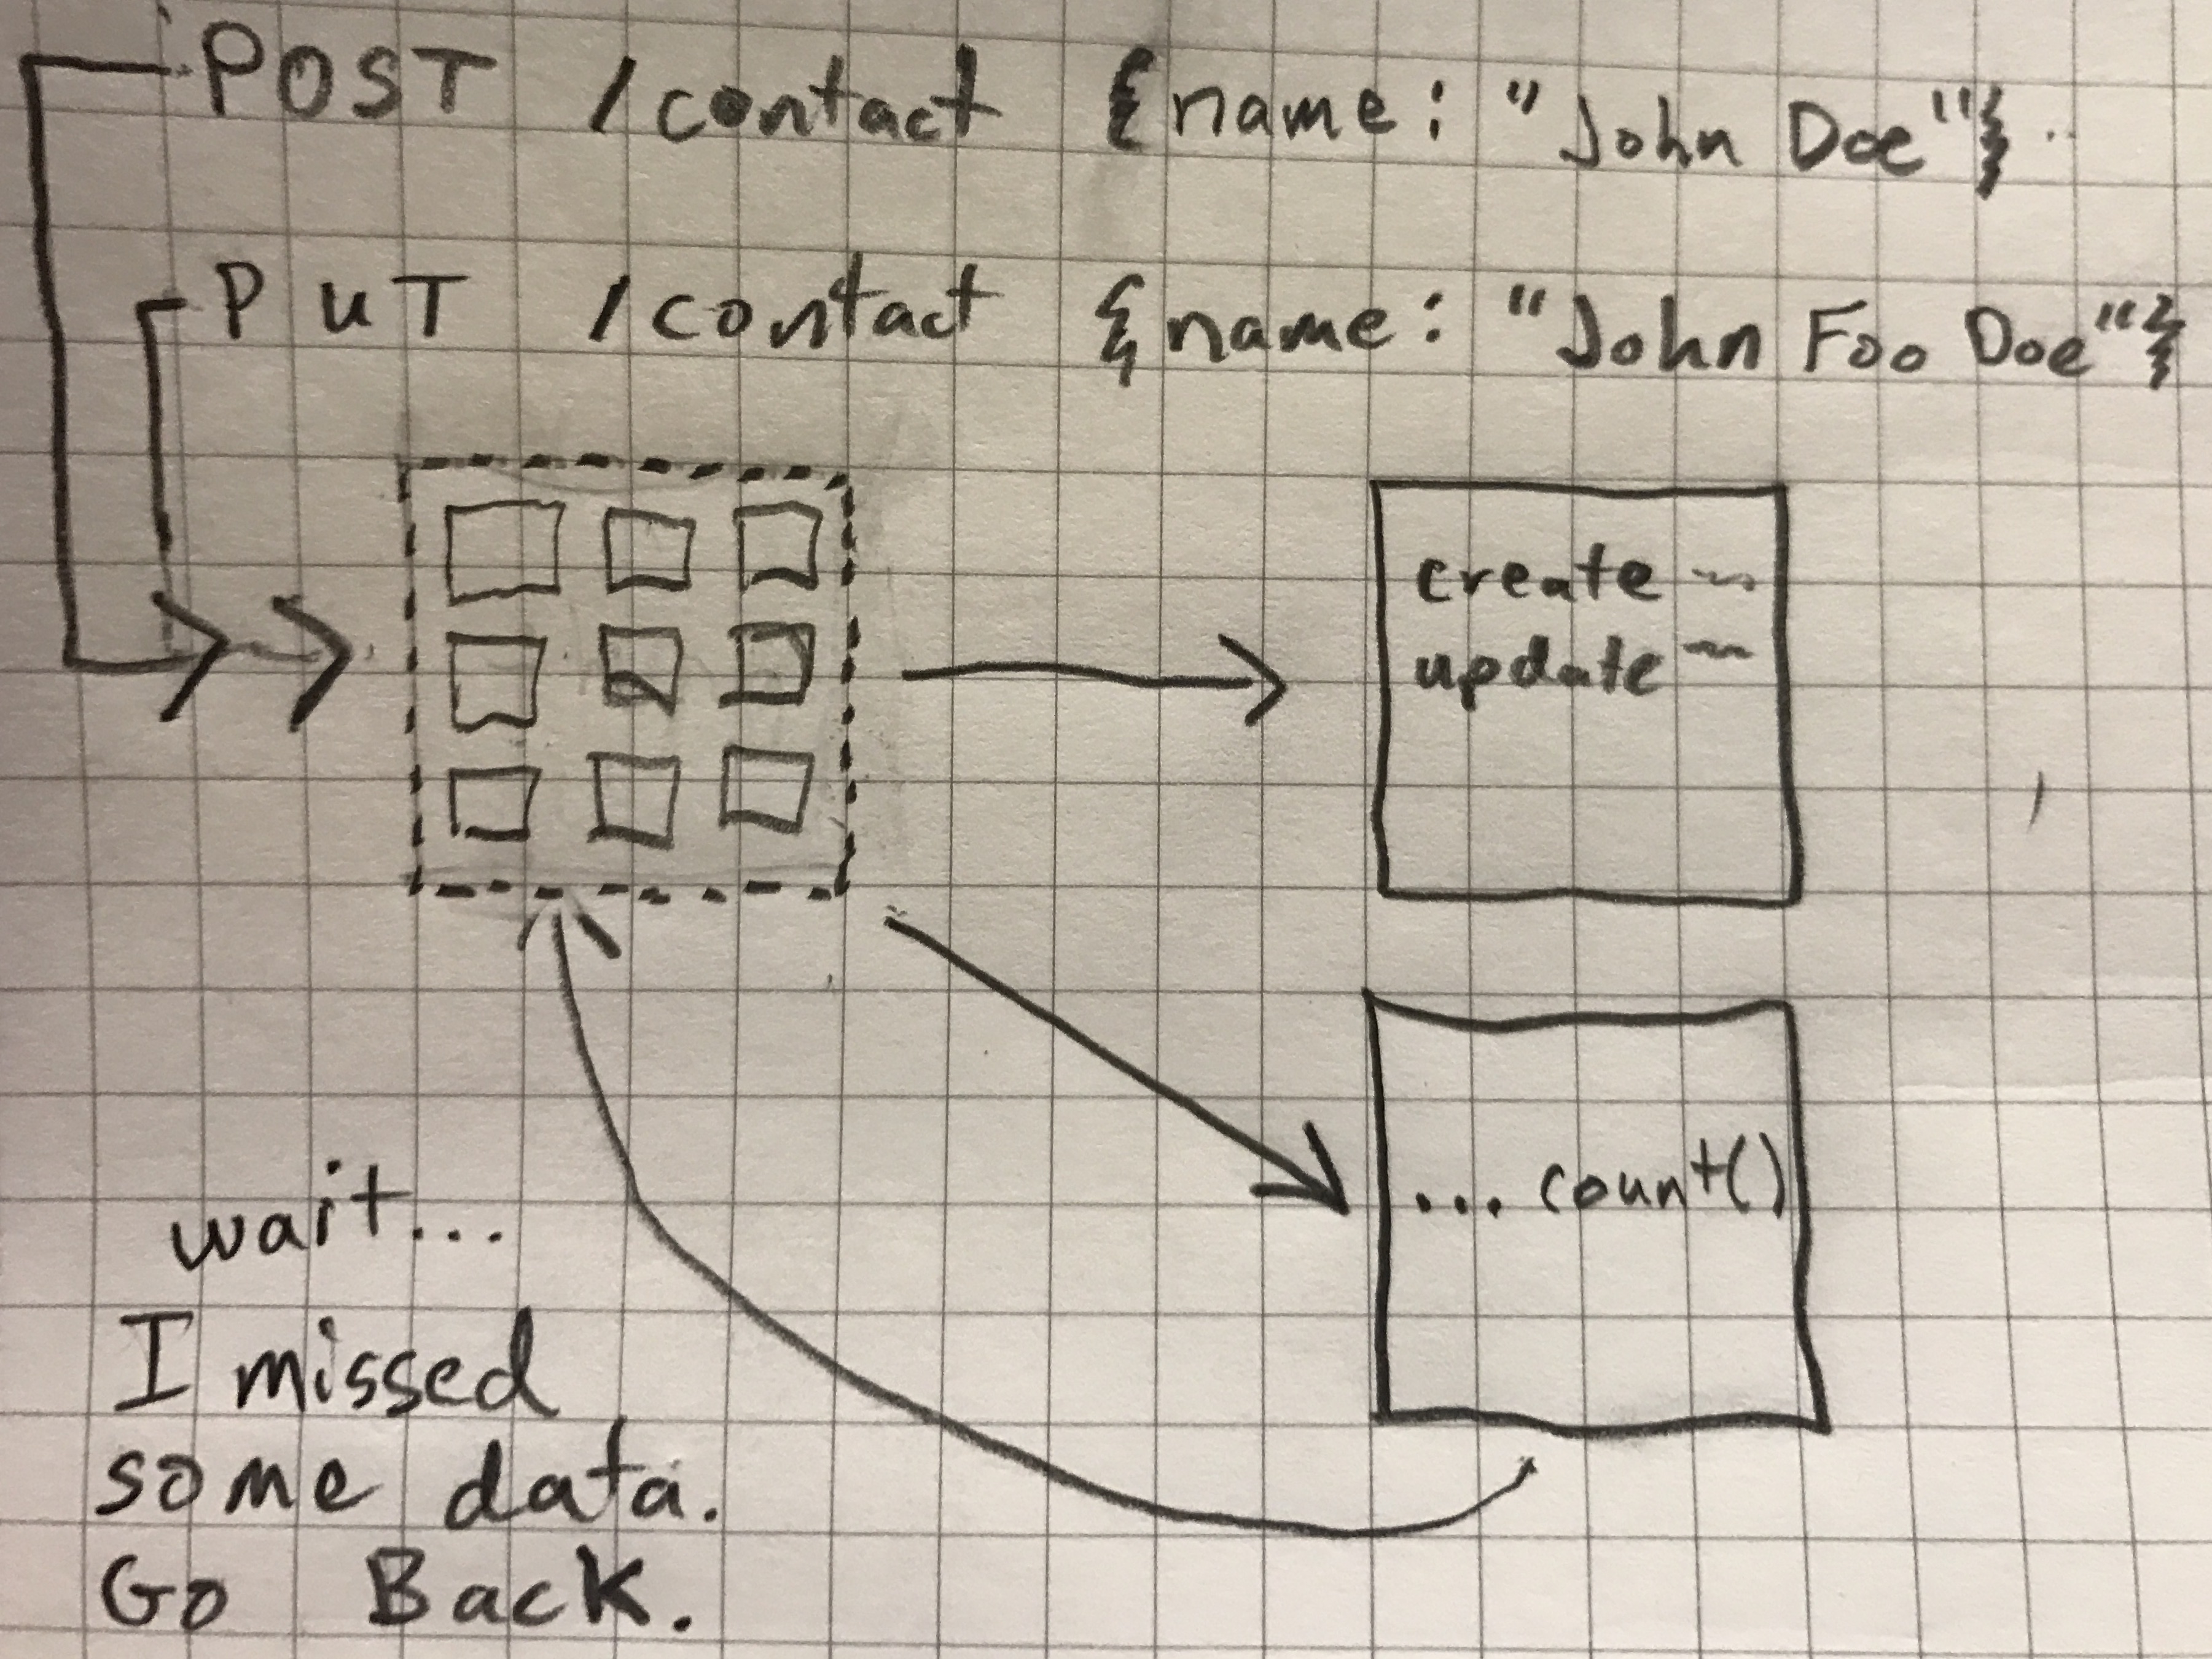 POST /contact {name: "John Doe"}
PUT /contact {name: "John Foo Doe"}
create
update
... count()
wait...
I missed
some data.
Go Back.